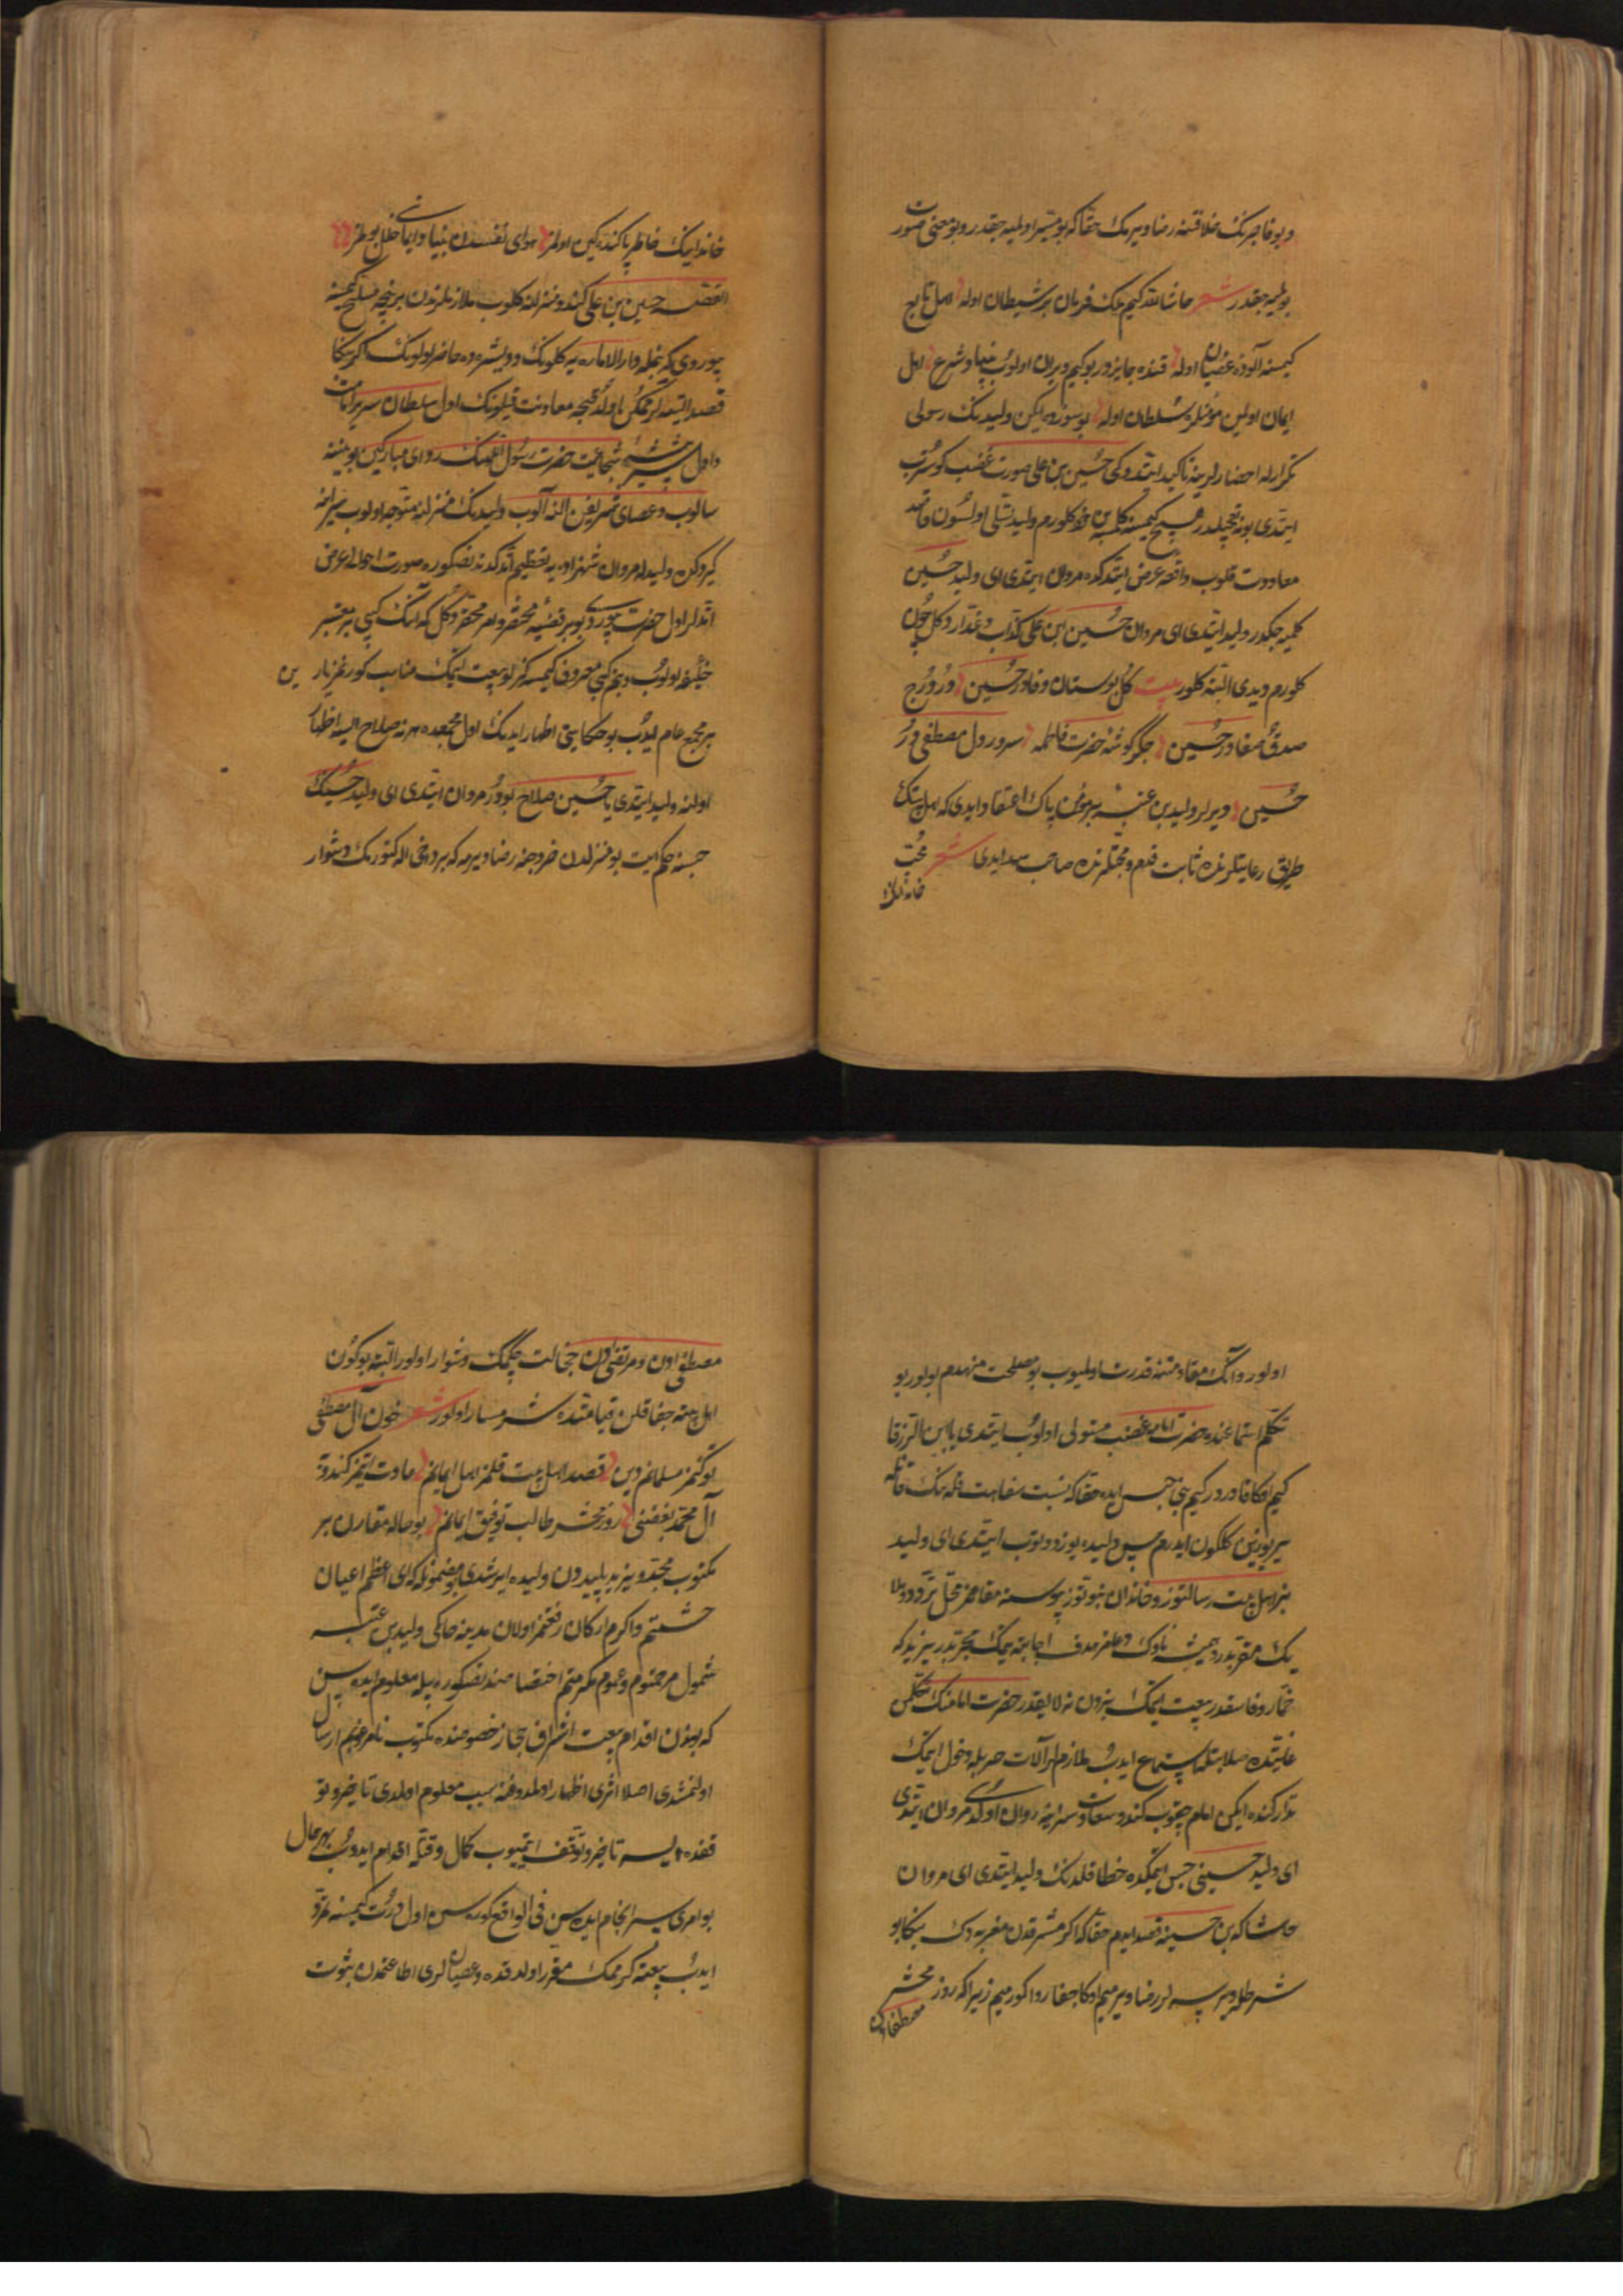 و بو فاجرنك خلافتنه رضا ویرمك حقا که بو میسر اولمیه جقدر و بو معنی صورت
بولمیه جقدر شعر حاشا لله کیم ملك فرمان بر شیطان اوله اهل تابع
کیمسنه آلوده عصیان اوله قنده جایزدور بو کیم ویران اولوب بنیاد شرع اهل
ایمان اولین مؤمنلره سلطان اوله بو سوزده ایکن ولیدنك رسولی
تکرارله احضارلرینه تاکید ایتدوکی حسین بن علی صورت غضب کوستروب
ایتدی بو نه تعجیلدر هیچ کیمسنه کلمسه بن خود کلورم ولید تسلی اولسون قاصد
معاودت قلوب واقعه عرض ایتدکده مروان ایتدی ای ولید حسین
کلمیه جکدور ولید ایتدی ای مروان حسین ابن علی کذاب و غدار دکل چون
کلورم دیدی البته کلور بیت کل بوستان وفادر حسین در درج
صدق و صفادر حسین جکر کوشه حضرت فاطمه سرور دل مصطفی در
حسین دیرلر ولید بن عتبه بر مؤمن پاك اعتقاد ایدی که اهل بیتك
طریق رعایتلرنده ثابت قدم و محبتلرنده صاحب سداد ایدی شعر محب
خاندانك
خاندانك خاطر پاکنده کین اولمز هوای نفسدن بنیاد ایمانی خلل بولمز
القصه حسین بن علی کندو منزلنه کلوب ملازملرندن بر نیچه مسلح کیمسنه
بیوردی که بنمله دار الاماره یه کلونك و ویشره ده حاضر اولونك اکر بکا
قصد ایتسه لر ممکن اولدوغنجه معاونت قیلونك اول سلطان سریر امامت
و اول شیر بیشهٔ شجاعت حضرت رسول اللهنك ردای مبارکین بوینینه
سالوب و عصای شریفین النه آلوب ولیدنك منزلنه متوجه اولوب سراینه
کیردکن ولیدله مروان شهزاده یه تعظیم ایتدکدنصکره صورت احوالی عرض
ایتدیلر اول حضرت بیوردی بو بر قضیهٔ مختصر و امر محقر دکل که آنك کبی بر معتبر
خلیفه اولوب و بنم کبی معروف کیمسه کیزلو بیعت ایتمك مناسب کورنمز یارین
بر مجمع عام ایدوب بو حکایتی اظهار ایدنك اول مجمعده هر نه صلاح ایسه اظهار
اولنه ولید ایتدی یا حسین صلاح بودور مروان ایتدی ای ولید حسینك
حبسنه حکم ایت بو منزلدن خروجنه رضا ویرمه که بر دخی اله کتورمك دشوار
اولور و آنك مقاومتنه قدرت اولمیوب بو مصلحت منهدم اولور بو
تکلم استماعنده حضرت امامه غضب مستولی اولوب ایتدی یا ابن الزرقا
کیم اوکا قادردر کیم بنی حبس ایده حقا که نسبت سفاهت قلمنك قانله
یر یوزین کلکون ایدرم پس ولیده یوز دوتوب ایتدی ای ولید
بز اهل بیت رسالتوز و خاندان نبوتوز پیوسته مقامز محل تردد ملا
یك مقربدر و همیشه ناوك دعامز هدف اجابته یتمك مجربدر یزید که
خمار و فاسقدر بیعت ایتمك بزدن نه لایقدر حضرت امامنك تکلمن
غایتده صلابتله استماع ایدوب ملازملر آلات حربله دخول ایتمك
تدارکنده ایکن امام چقوب کندو سعادت سراینه روان اولدی مروان ایتدی
ای ولید حسینی حبس ایتمکده خطا قلدنك ولید ایتدی ای مروان
حاشا که بن حسینه قصد ایدم حقا که اکر مشرقدن مغربه دك بنکا بو
شرطله ویرسه لر رضا ویرمیم اوکا جفا روا کورمیم زیرا که روز محشر
مصطفادن
مصطفی‌دن و مرتضی‌دن خجالت چکمك دشوار اولور البته بو کون
اهل بیته جفا قلن قیامتده شرمسار اولور شعر خون آل مصطفی
توکمز مسلمانم دین قصد اهل بیت قلمز اهل ایمانم عادت ایتمز کندوته
آل محمد بغضنی روز محشر طالب توفیق ایمانم بو حاله مقارن بر
مکتوب مجدد یزید پلیددن ولیده ایرشدی بو مضمونله که ای اعظم اعیان
حشمتم و اکرم ارکان رفعتم اولان مدینه حاکمی ولید بن عتبه
شمول مرحمتوم و عموم مکرمتم اختصاصندنصکره بیله معلوم ایده سن
که بوندن اقدام بیعت اشراف حجاز خصوصنده مکتوب نامرغوبم ارسال
اولنمشدی اصلا اثری اظهار اولمدوغنه سبب معلوم اولمدی تاخیر و تو
قفده ایسه تاخیر و توقف ایتمیوب کمال وقتله اقدام ایدوب بهر حال
بو امری سرانجام ایده سن فی الواقع کوره سن اول درت کیمسنه تمرد
ایدوب بیعته کرمك مقرر اولدقده و عصیانلری اطاعتمدن ثبوت